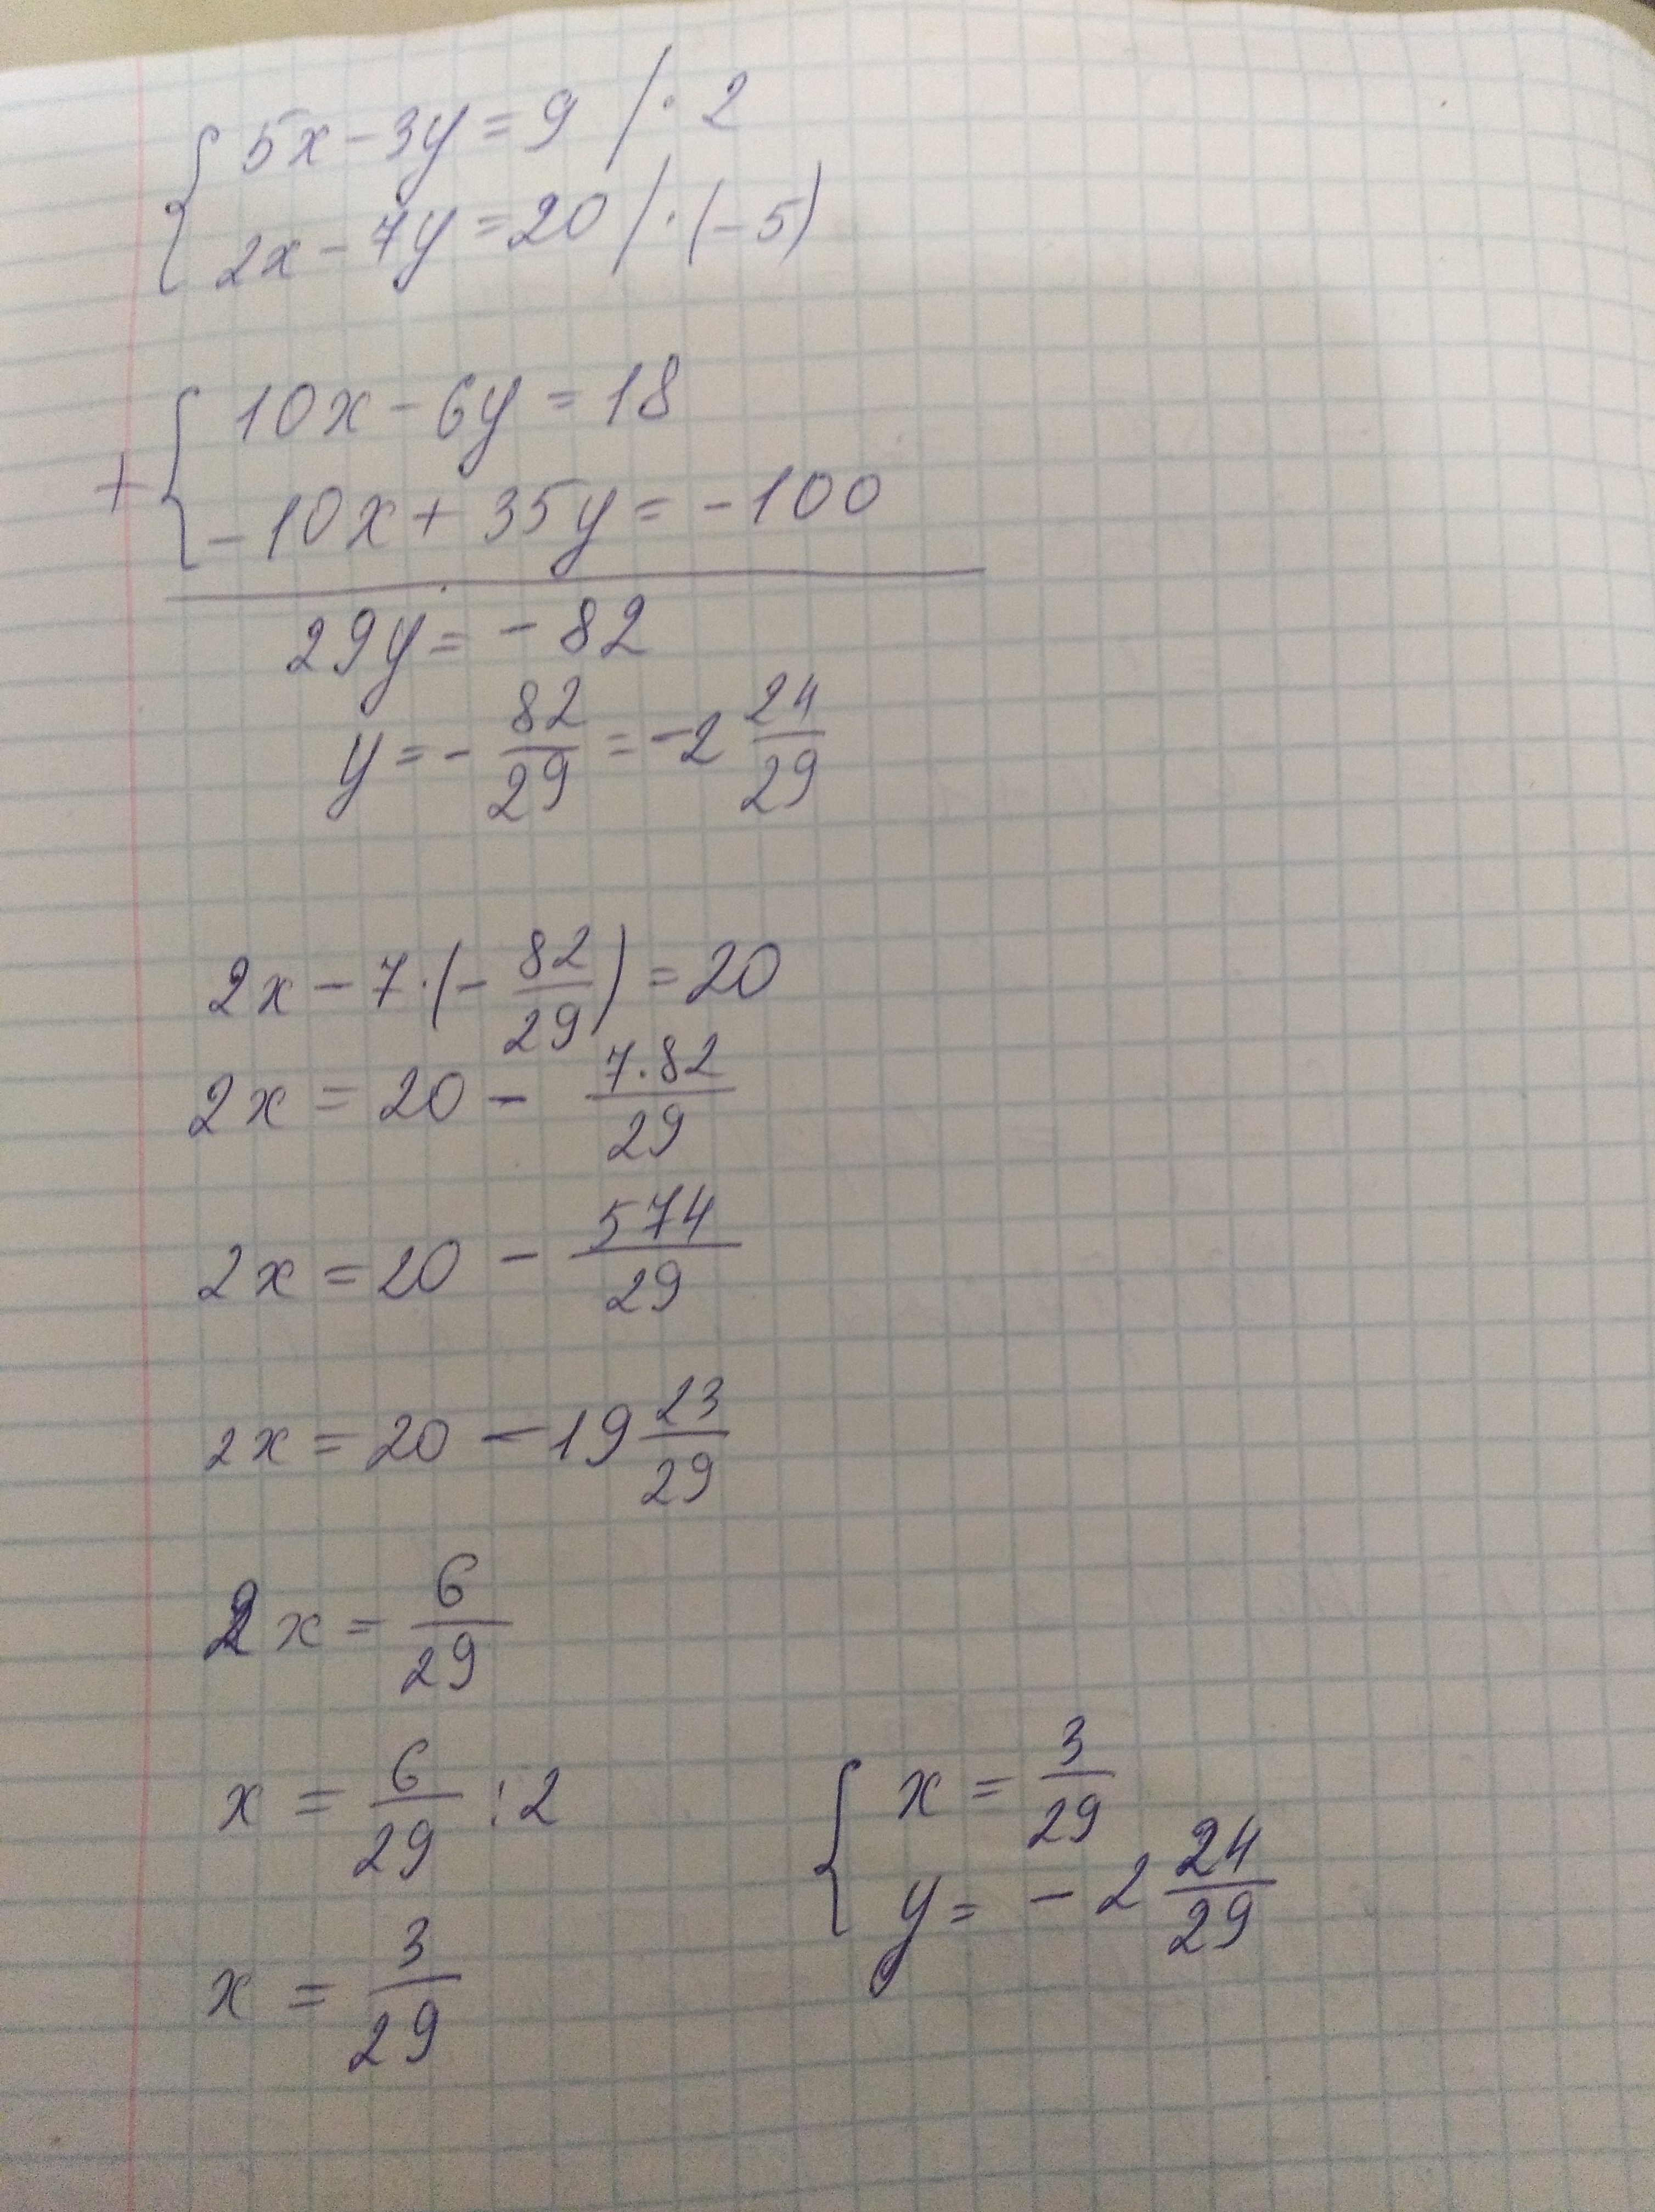 { 5x - 3y = 9 / · 2
2x - 7y = 20 / · (-5)
+ { 10x - 6y = 18
-10x + 35y = -100
29y = -82
y = - 82/29 = -2 24/29
2x - 7 · (- 82/29) = 20
2x = 20 - 7·82/29
2x = 20 - 574/29
2x = 20 - 19 23/29
2x = 6/29
x = 6/29 : 2
x = 3/29
{ x = 3/29
y = -2 24/29